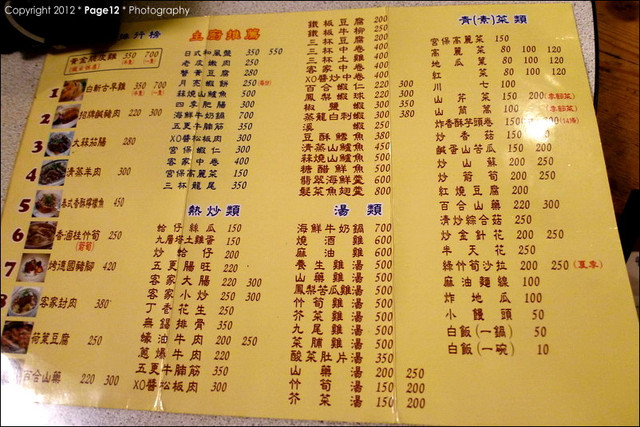 Copyright 2012 * Page12 * Photography
主廚推薦
日式和風盤 350 550
老皮嫩肉 250
蟹黃豆腐 280
月亮蝦餅 250
蒜燒山鱸魚 500
四季肥腸 300
海鮮牛奶鍋 700
五更牛腩筋 350
XO醬松板肉 300
宮保蝦仁 300
客家中卷 400
宮保高麗菜 150
三杯龍尾 350
熱炒類
蛤仔絲瓜 150
九層塔土雞蛋 150
炒蛤仔 200
五更腸旺 220
客家大腸 220 300
客家小炒 250 300
丁香花生 250
無錫排骨 350
蠔油牛肉 200 250
蔥爆牛肉 220
五更牛腩筋 350
XO醬松板肉 300
鐵板豆腐 200
鐵板牛柳
三杯中卷 400
三杯土雞
客家中卷 400
XO醬炒中卷 400
百合蝦仁 300
鳳梨蝦球 220 300
椒鹽蝦 300 350
蒸龍白刺蝦 300
溪蝦 250
豆酥鱈魚 380
清蒸山鱸魚 450
蒜燒山鱸魚 500
糖醋鮮魚 500
翡翠海鮮羹 600
髮菜魚翅羹 800
湯類
海鮮牛奶鍋 700
燒酒雞 600
麻油雞 600
養生雞湯 500
山藥雞湯 500
鳳梨苦瓜雞湯 500
竹筍雞湯 500
芥菜雞湯 500
九尾雞湯 500
菜脯雞湯 500
酸菜肚片湯 350
山藥湯 200 250
竹筍湯 150 200
芥菜湯 150 200
青(素)菜類
宮保高麗菜 150
高麗菜 80 100 120
地瓜葉 80 100 120
紅菜 80 100 120
川七 100
山芹菜 150 200
山蘇 150 200
炸香酥芋頭卷
炒香菇 150
鹹蛋山苦瓜 150 200
炒山蘇 200 250
炒筍 200 250
紅燒豆腐 200
百合山藥 220 300
清炒綜合菇 250
炒金針花 200 250
半天花 250
綠竹筍沙拉 200 250 (夏季)
麻油麵線 100
炸地瓜 100
小饅頭 50
白飯(一鍋) 50
白飯(一碗) 10
黃金脆皮雞 350 700
1 白斬古早雞 350 700
2 招牌鹹豬肉 220 300
3 大蒜茄腸 280
4 清蒸羊肉 300
5 泰式香酥檸檬魚 450
6 香滷桂竹筍 250
7 烤德國豬腳 420
8 客家封肉 380
荷葉豆腐 250
百合山藥 220 300